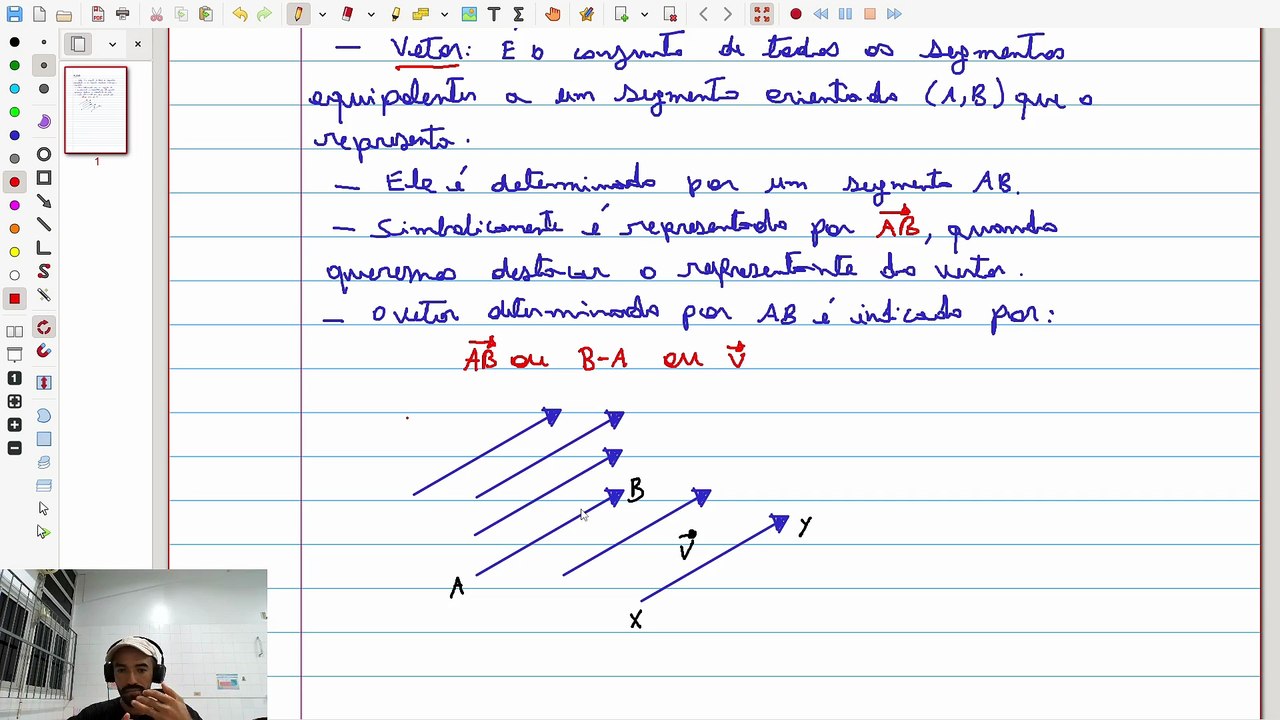 - Vetor: É o conjunto de todos os segmentos
equipolentes a um segmento orientado (A,B) que o
representa.
- Ele é determinado por um segmento AB.
- Simbolicamente é representado por AB, quando
queremos destacar o representante do vetor.
- O vetor determinado por AB é indicado por:
AB ou B-A ou V
B
V
Y
A
X
1